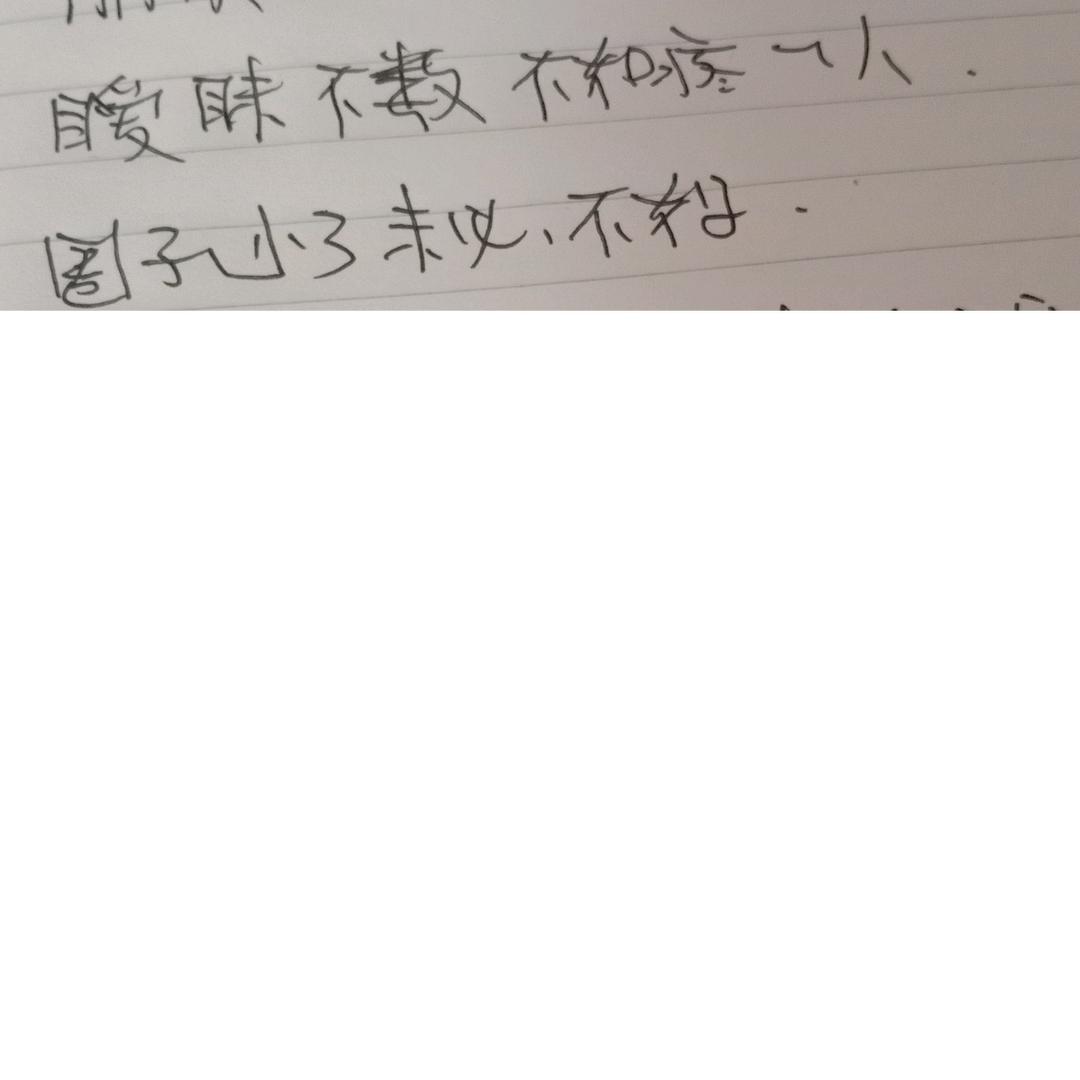 暧昧不数 不如疼一人.
圈子小了未必不好.